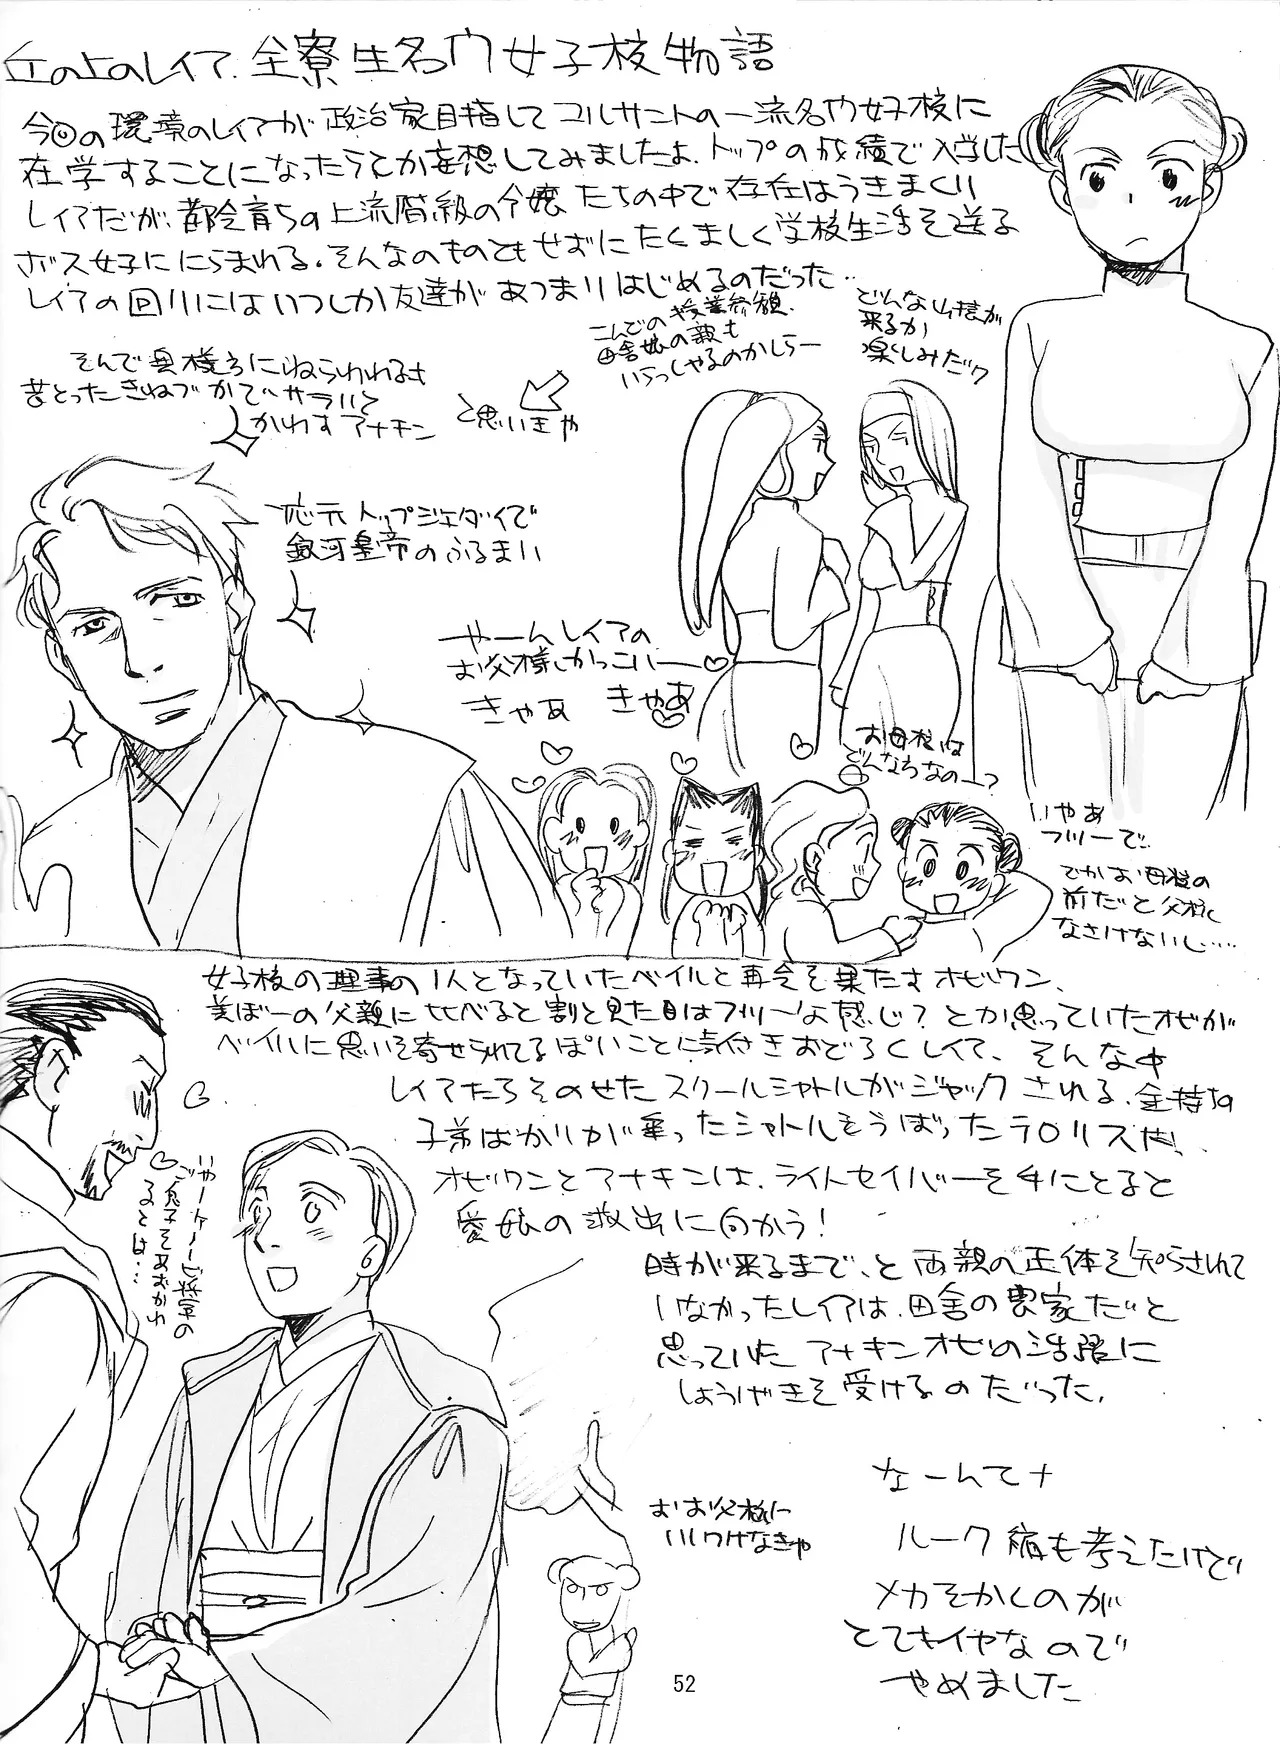 丘の上のレイア.全寮生名門女子校物語
今回の環境のレイアが政治家目指してコルサントの一流名門女子校に
在学することになったらとか妄想してみましたよ.トップの成績で入学した
レイアだが、都会育ちの上流階級の令嬢たちの中で存在はうきまくり
ボス女子ににらまれる.そんなのものともせずにたくましく学校生活を送る
レイアの回りにはいつしか友達があつまりはじめるのだった..
こんどの授業参観.
田舎娘の親も
いらっしゃるのかしらー
どんな山猿が
来るか
楽しみだワ
そんで奥様方にねらわれるも
昔とったきねづかでサラリと
かわすアナキン
と思いきや
応元トップジェダイで
銀河皇帝のふるまい
やーんレイアの
お父様かっこいー
きゃあ きゃあ
お母様は
どんななちなのー?
いやあ
フツーで..
でかお母様の
前だと父様
なさけないし....
女子校の理事の1人となっていたベイルと再会を果たすオビワン、
美ぼーの父親に比べると割と見た目はフツーな感じ?とか思っていたオビが
ベイルに思いを寄せられてるぽいことに気付きおどろくレイア、そんな中
レイアたちをのせたスクールシャトルがジャックされる.金持の
子弟ばかりが乗ったシャトルをうばったテロリスト!..
オビワンとアナキンは、ライトセイバーを手にとると
愛娘の救出に向かう!
いやーケノービ将軍の
ご息子そあおかわ
るとは...
時が来るまで、と両親の正体を知らされて
いなかったレイアは、田舎の農家だと
思っていたアナキンオビの活躍に
しょうげきを受けるのだった.
なーんてナ
おお父様に
いいつけなきゃ
ルーク編も考えたけど
メカをかくのが
とてもイヤなので
やめました
52